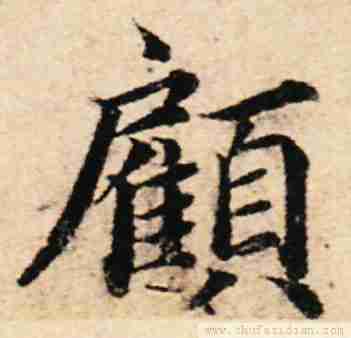 顧
www.shufazidian.com